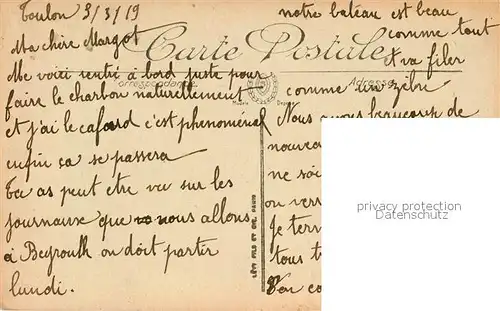 Toulon 3/3/19
Ma chère Margot
Carte Postale
Correspondance
Adresse
Me voici rentré à bord juste pour
faire le charbon naturellement
et j'ai le cafard c'est phenoménal
enfin ça se passera
Tu as peut etre vu sur les
journaux que nous allons
à Beyrouth on doit partir
lundi.
LÉVY FILS ET CIE. PARIS
notre bateau est beau
comme tout
et va filer
comme un zèbre
Nous avons beaucoup de
nouveau
ne soi
ou verr
Je ter
tous t
Ton co
privacy protection
Datenschutz